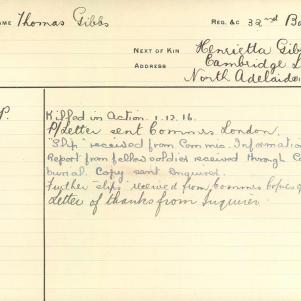 NAME Thomas Gibbs
REG. &C 32nd Ba
NEXT OF KIN Henrietta Gib
ADDRESS Cambridge
North Adelaide
P.
Killed in Action 1.12.16.
P/Letter sent Commrs London.
"Slip" received from Commis. Information
Report from fellow soldier received through C
burial. Copy sent Enquirer.
Further "slips" received from Commrs Copies
Letter of thanks from Inquirer